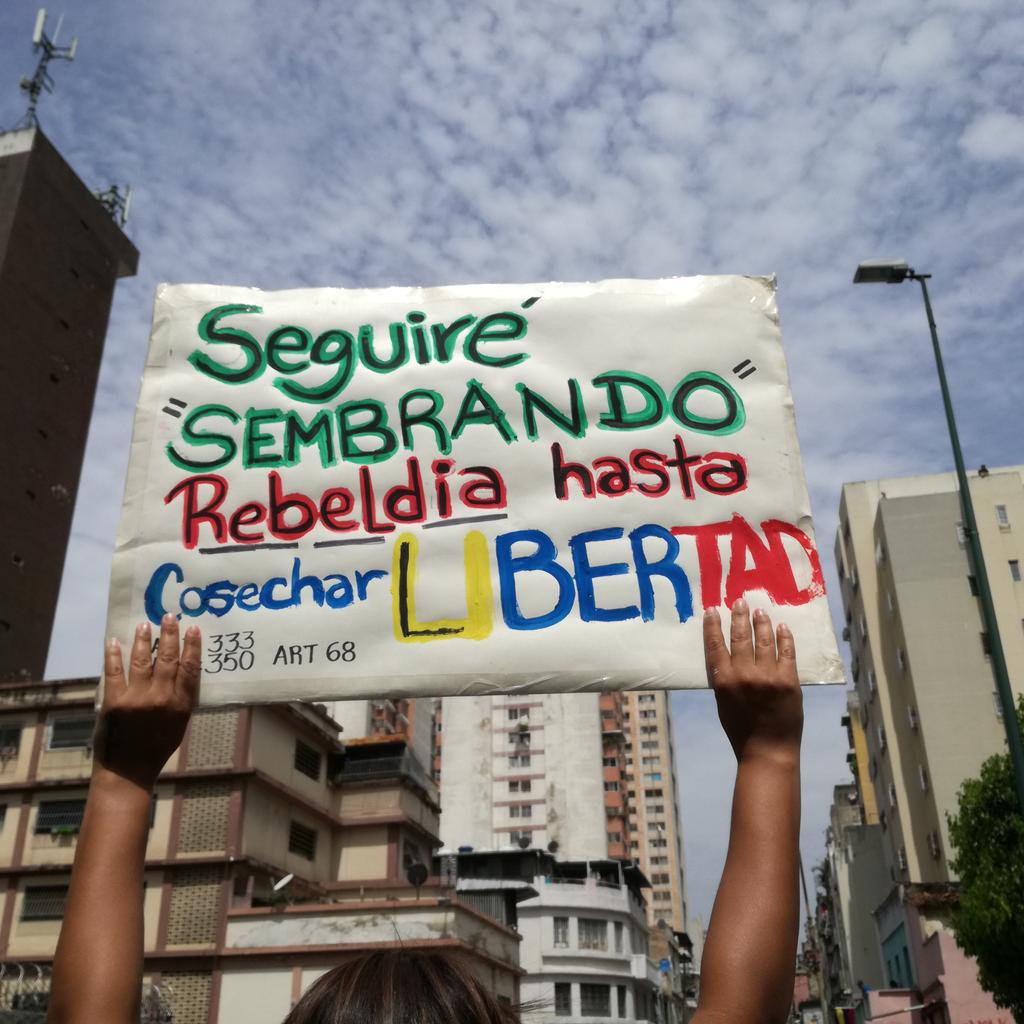 Seguiré
"SEMBRANDO"
Rebeldia hasta
Cosechar LIBERTAD
333
350 ART 68